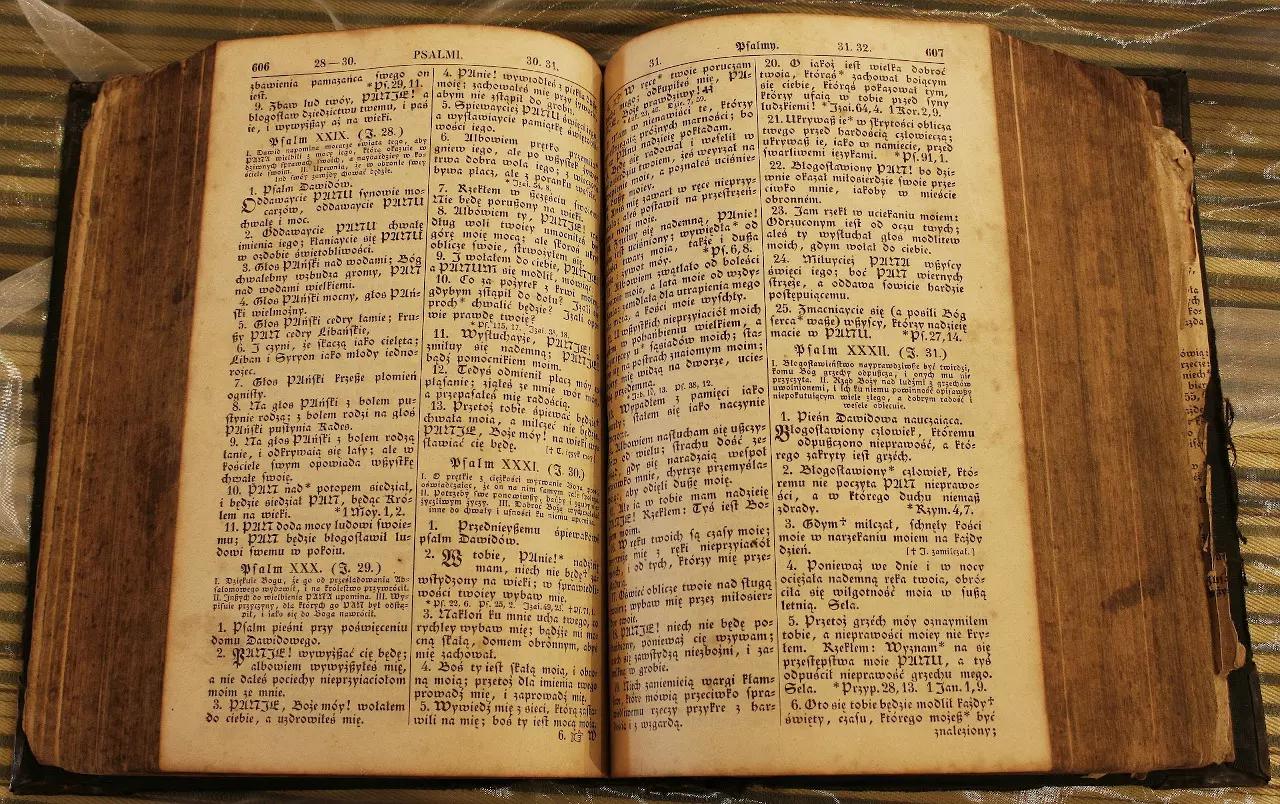 606 28—30. PSALMI. 30. 31.
zbawienia pamazańca swego on
iest. *Ps. 29, 11.
9. Zbaw lud twóy, PANJE! a
błogosław dziedzictwu twemu, i paś
ie, i wywyższay aż na wieki.
Psalm XXIX. (J. 28.)
I. Dawid napomina mocarze świata tego, aby
PANA wielbili z mocy iego, którą okazuie w
dziwnych sprawach swoich, a naybardziey w ko-
ściele swoim. II. Upewnia, że w obronie swey
lud swóy zawżdy chować będzie.
1. Psalm Dawidów.
Oddawaycie PANU synowie mo-
carzów, oddawaycie PANU
chwałę i moc.
2. Oddawaycie PANU chwałę
imienia iego; kłaniaycie się PANU
w ozdobie świętobliwości.
3. Głos PAński nad wodami; Bóg
chwalebny wzbudza gromy, PAN
nad wodami wielkiemi.
4. Głos PAński mocny, głos PAń-
ski wielmożny.
5. Głos PAński cedry łamie; kru-
szy PAN cedry Libańskie,
6. I czyni, że skaczą iako cielęta;
Liban i Syryon iako młody iedno-
rożec.
7. Głos PAński krzesze płomień
ognisty.
8. Na głos PAński z bolem pu-
stynie rodzą; z bolem rodzi na głos
PAński pustynia Kades.
9. Na głos PAński z bolem rodzą
łanie, i odkrywaią się lasy; ale w
kościele swym opowiada wszystkę
chwałę swoię.
10. PAN nad* potopem siedział,
i będzie siedział PAN, będąc Kró-
lem na wieki. *1 Moy. 1, 2.
11. PAN doda mocy ludowi swoie-
mu; PAN będzie błogosławił lu-
dowi swemu w pokoiu.
Psalm XXX. (J. 29.)
I. Dziękuie Bogu, że go od prześladowania Ab-
salomowego wybawił, i na królestwo przywrócił.
II. Inszych do wielbienia PANA upomina. III. Wy-
pisuie przyczyny, dla których go PAN był odstą-
pił, i iako się do Boga nawrócił.
1. Psalm pieśni przy poświęceniu
domu Dawidowego.
2. PANJE! wywyższać cię będę;
albowiem wywyższyłeś mię,
a nie dałeś pociechy nieprzyiaciołom
moim ze mnie.
3. PANJE, Boże móy! wołałem
do ciebie, a uzdrowiłeś mię.
4. PAnie! wywiodłeś z piekła duszę
moię; zachowałeś mię przy żywocie,
abym nie zstąpił do grobu.
5. Śpiewaycie PANU
a wysławiaycie pamiątkę święto-
wości iego.
6. Albowiem prędko przemiia
gniew iego, ale po wszystek żywot
trwa dobra wola iego; z wieczora
bywa płacz, ale z poranku wesele.
*Jzai. 54, 8.
7. Rzekłem w szczęściu swoiem:
Nie będę poruszony na wieki.
8. Albowiem ty, PANJE!
dług woli twoiey umocniłeś był
górę moię mocą; ale skoroś ukrył
oblicze swoie, strwożyłem się.
9. I wołałem do ciebie, PANJE!
a PANUM się modlił, mówiąc:
10. Co za pożytek z krwi moiey,
gdybym zstąpił do dołu? Jzali
proch* chwalić będzie? Jzali opo-
wie prawdę twoię?
*Ps. 115, 17. Jzai. 38, 18.
11. Wysłuchayże, PANJE!
zmiłuy się nademną; PANJE!
bądź pomocnikiem moim.
12. Tedyś odmienił płacz móy w
pląsanie; zjąłeś ze mnie wór móy,
a przepasałeś mię radością.
13. Przetoż tobie śpiewać będzie
chwała moia, a milczeć nie będzie.
PANJE, Boże móy! na wieki wy-
sławiać cię będę.
Psalm XXXI. (J. 30.)
1. Przednieyszemu śpiewakowi
psalm Dawidów.
2. W tobie, PAnie!* nadzieię
mam, niech nie będę† za-
wstydzony na wieki; w sprawiedli-
wości twoiey wybaw mię.
*Ps. 22, 6. Ps. 25, 2. Jzai. 49, 23. †Ps. 71, 1.
3. Nakłoń ku mnie ucha twego,
rychley wybaw mię; bądźże mi mo-
cną skałą, domem obronnym, abyś
mię zachował.
4. Boś ty iest skałą moią, i obro-
ną moią; przetoż dla imienia twego
prowadź mię, i zaprowadź mię.
5. Wywiedź mię z sieci, którą zasta-
wili na mię; boś ty iest mocą moią.
6. W
31. Psalmy. 31. 32. 607
W ręce* twoie poruczam
odkupiłeś mię, PA-
Boże prawdziwy!
w nienawiści te, którzy
próżnych marności; bo
PANU nadzieię pokładam.
się radował i weselił w
twoiem, żeś weyrzał na
a poznałeś uciśnie-
duszy moiey.
mię zawarł w ręce nieprzy-
aleś postawił na przestrzeń-
nogi moie.
się nademną, PAnie!
uciśniony; wywiędła* od
twarz moia, także i dusza
żywot móy. *Ps. 6, 8.
Albowiem zwątlało od boleści
moie, a lata moie od wzdy-
zemdlała dla utrapienia mego
moia, a kości moie wyschły.
wszystkich nieprzyiaciół moich
w pohańbieniu wielkiem, a
u* sąsiadów moich; sta-
na postrach znaiomym moim;
mię widzą na dworze, ucie-
przedemną.
*Job. 19, 13. Ps. 38, 12.
Wypadłem z pamięci iako
stałem się iako naczynie
Albowiem nasłucham się uszczy-
od wielu; strachu dość ze-
gdy się naradzaią wespół
mnie, chytrze przemyśla-
aby odięli duszę moię.
Ale ia w tobie mam nadzieię
PANJE! Rzekłem: Tyś iest Bo-
giem moim.
W ręku twoich są czasy moie;
mię z ręki nieprzyiaciół
i od tych, którzy mię prze-
Oświeć oblicze twoie nad sługą
wybaw mię przez miłosier-
twoie.
PANJE! niech nie będę po-
hańbiony, ponieważ cię wzywam;
niech się zawstydzą niezbożni, i za-
milkną w grobie.
Niech zaniemieią wargi kłam-
liwe, które mówią przeciwko spra-
wiedliwemu rzeczy przykre z har-
dością i z wzgardą.
20. O iakoż iest wielka dobroć
twoia, którąś* zachował boiącym
się ciebie, którąś pokazował tym,
którzy ufaią w tobie przed syny
ludzkiemi! *Jzai. 64, 4. 1 Kor. 2, 9.
21. Ukrywasz ie* w skrytości oblicza
twego przed hardością człowieczą;
ukrywasz ie, iako w namiecie, przed
swarliwemi ięzykami. *Ps. 91, 1.
22. Błogosławiony PAN! bo dzi-
wnie okazał miłosierdzie swoie prze-
ciwko mnie, iakoby w mieście
obronnem.
23. Jam rzekł w uciekaniu moiem:
Odrzuconym iest od oczu twych;
aleś ty wysłuchał głos modlitew
moich, gdym wołał do ciebie.
24. Miłuycież PANA wszyscy
święci iego; boć PAN wiernych
strzeże, a oddawa sowicie hardzie
postępuiącemu.
25. Zmacniaycie się (a posili Bóg
serca* wasze) wszyscy, którzy nadzieię
macie w PANU. *Ps. 27, 14.
Psalm XXXII. (J. 31.)
I. Błogosławieństwo nayprawdziwsze być twierdzi,
komu Bóg grzechy odpuszcza, i onych mu nie
przyczyta. II. Rząd Boży nad ludźmi z grzechów
uwolnionemi, i ich ku niemu powinność opisawszy
niepokutuiącym wiele złego, a dobrym radość i
wesele obiecuie.
1. Pieśń Dawidowa nauczaiąca.
Błogosławiony człowiek, któremu
odpuszczono nieprawość, a któ-
rego zakryty iest grzéch.
2. Błogosławiony* człowiek, któ-
remu nie poczyta PAN nieprawo-
ści, a w którego duchu niemasz
zdrady. *Rzym. 4, 7.
3. Gdym† milczał, schnęły kości
moie w narzekaniu moiem na każdy
dzień. [† J. zamilczał.]
4. Ponieważ we dnie i w nocy
ociężała nademną ręka twoia, obró-
ciła się wilgotność moia w suszą
letnią. Sela.
5. Przetoż grzéch móy oznaymiłem
tobie, a nieprawości moiey nie kry-
łem. Rzekłem: Wyznam* na się
przestępstwa moie PANU, a tyś
odpuścił nieprawość grzechu mego.
Sela. *Przyp. 28, 13. 1 Jan. 1, 9.
6. Oto się tobie będzie modlił każdy†
święty, czasu, którego możesz* być
znaleziony;